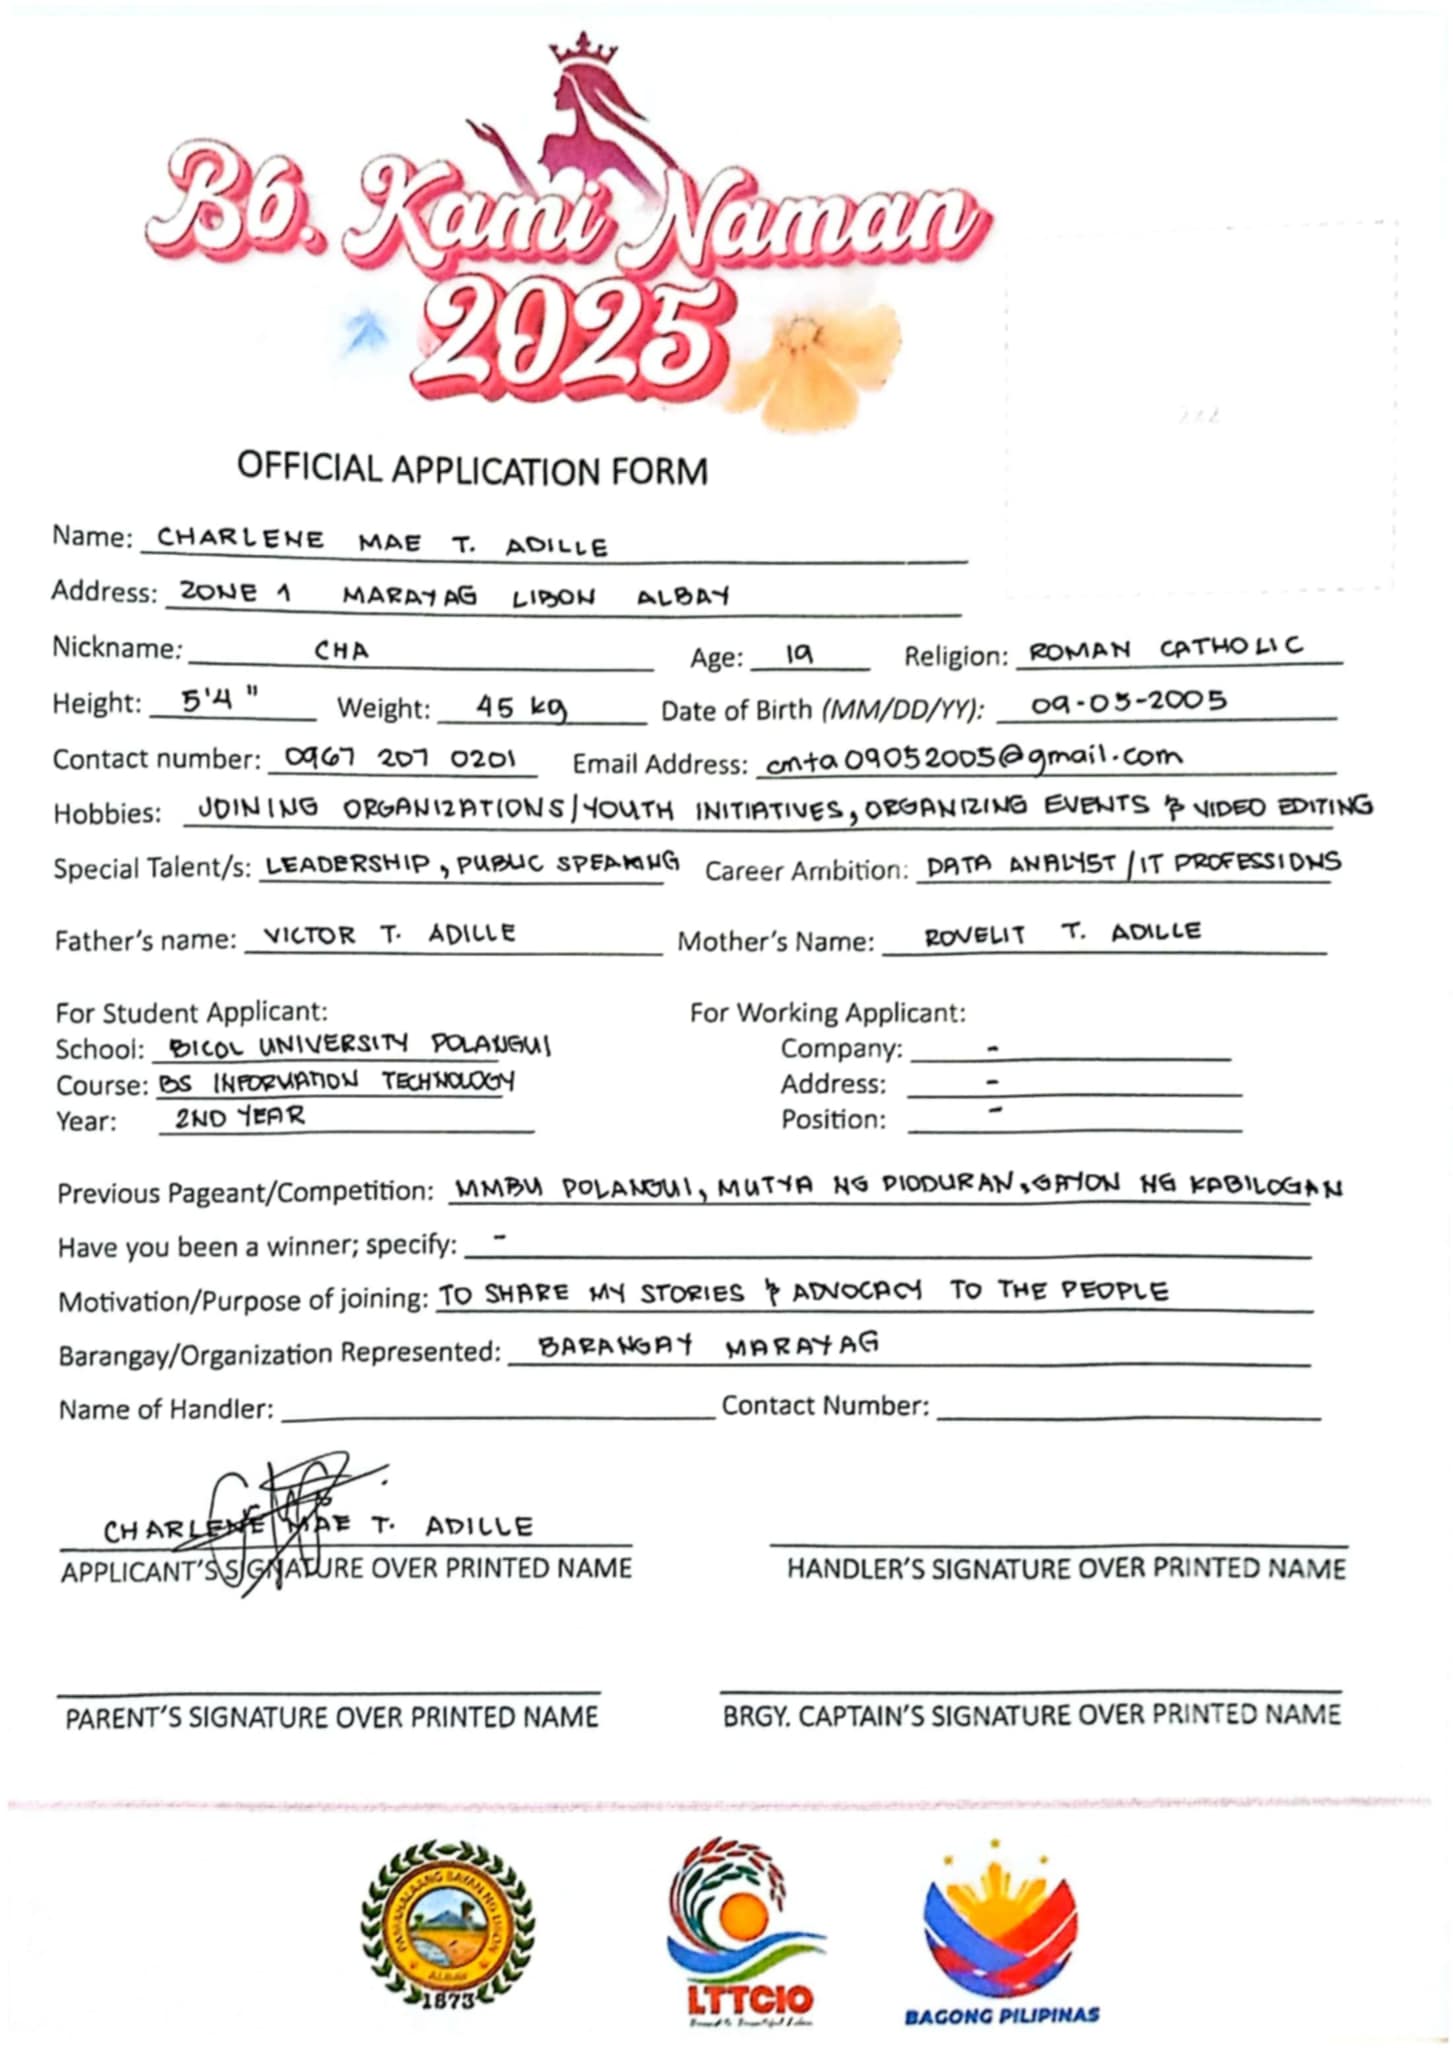 Bb. Kami Naman
2025
OFFICIAL APPLICATION FORM
Name: CHARLENE MAE T. ADILLE
Address: ZONE 1 MARAYAG LIBON ALBAY
Nickname: CHA Age: 19 Religion: ROMAN CATHOLIC
Height: 5'4" Weight: 45 kg Date of Birth (MM/DD/YY): 09-05-2005
Contact number: 0967 207 0201 Email Address: cmta09052005@gmail.com
Hobbies: JOINING ORGANIZATIONS/YOUTH INITIATIVES, ORGANIZING EVENTS & VIDEO EDITING
Special Talent/s: LEADERSHIP, PUBLIC SPEAKING Career Ambition: DATA ANALYST / IT PROFESSIONS
Father's name: VICTOR T. ADILLE Mother's Name: ROVELIT T. ADILLE
For Student Applicant: For Working Applicant:
School: BICOL UNIVERSITY POLANGUI Company: -
Course: BS INFORMATION TECHNOLOGY Address: -
Year: 2ND YEAR Position: -
Previous Pageant/Competition: MMBU POLANGUI, MUTYA NG PIODURAN, GAYON NG KABILOGAN
Have you been a winner; specify: -
Motivation/Purpose of joining: TO SHARE MY STORIES & ADVOCACY TO THE PEOPLE
Barangay/Organization Represented: BARANGAY MARAYAG
Name of Handler: Contact Number:
CHARLENE MAE T. ADILLE
APPLICANT'S SIGNATURE OVER PRINTED NAME HANDLER'S SIGNATURE OVER PRINTED NAME
PARENT'S SIGNATURE OVER PRINTED NAME BRGY. CAPTAIN'S SIGNATURE OVER PRINTED NAME
PAMAHALAANG BAYAN NG LIBON
ALBAY
1873
LTTCIO
BAGONG PILIPINAS